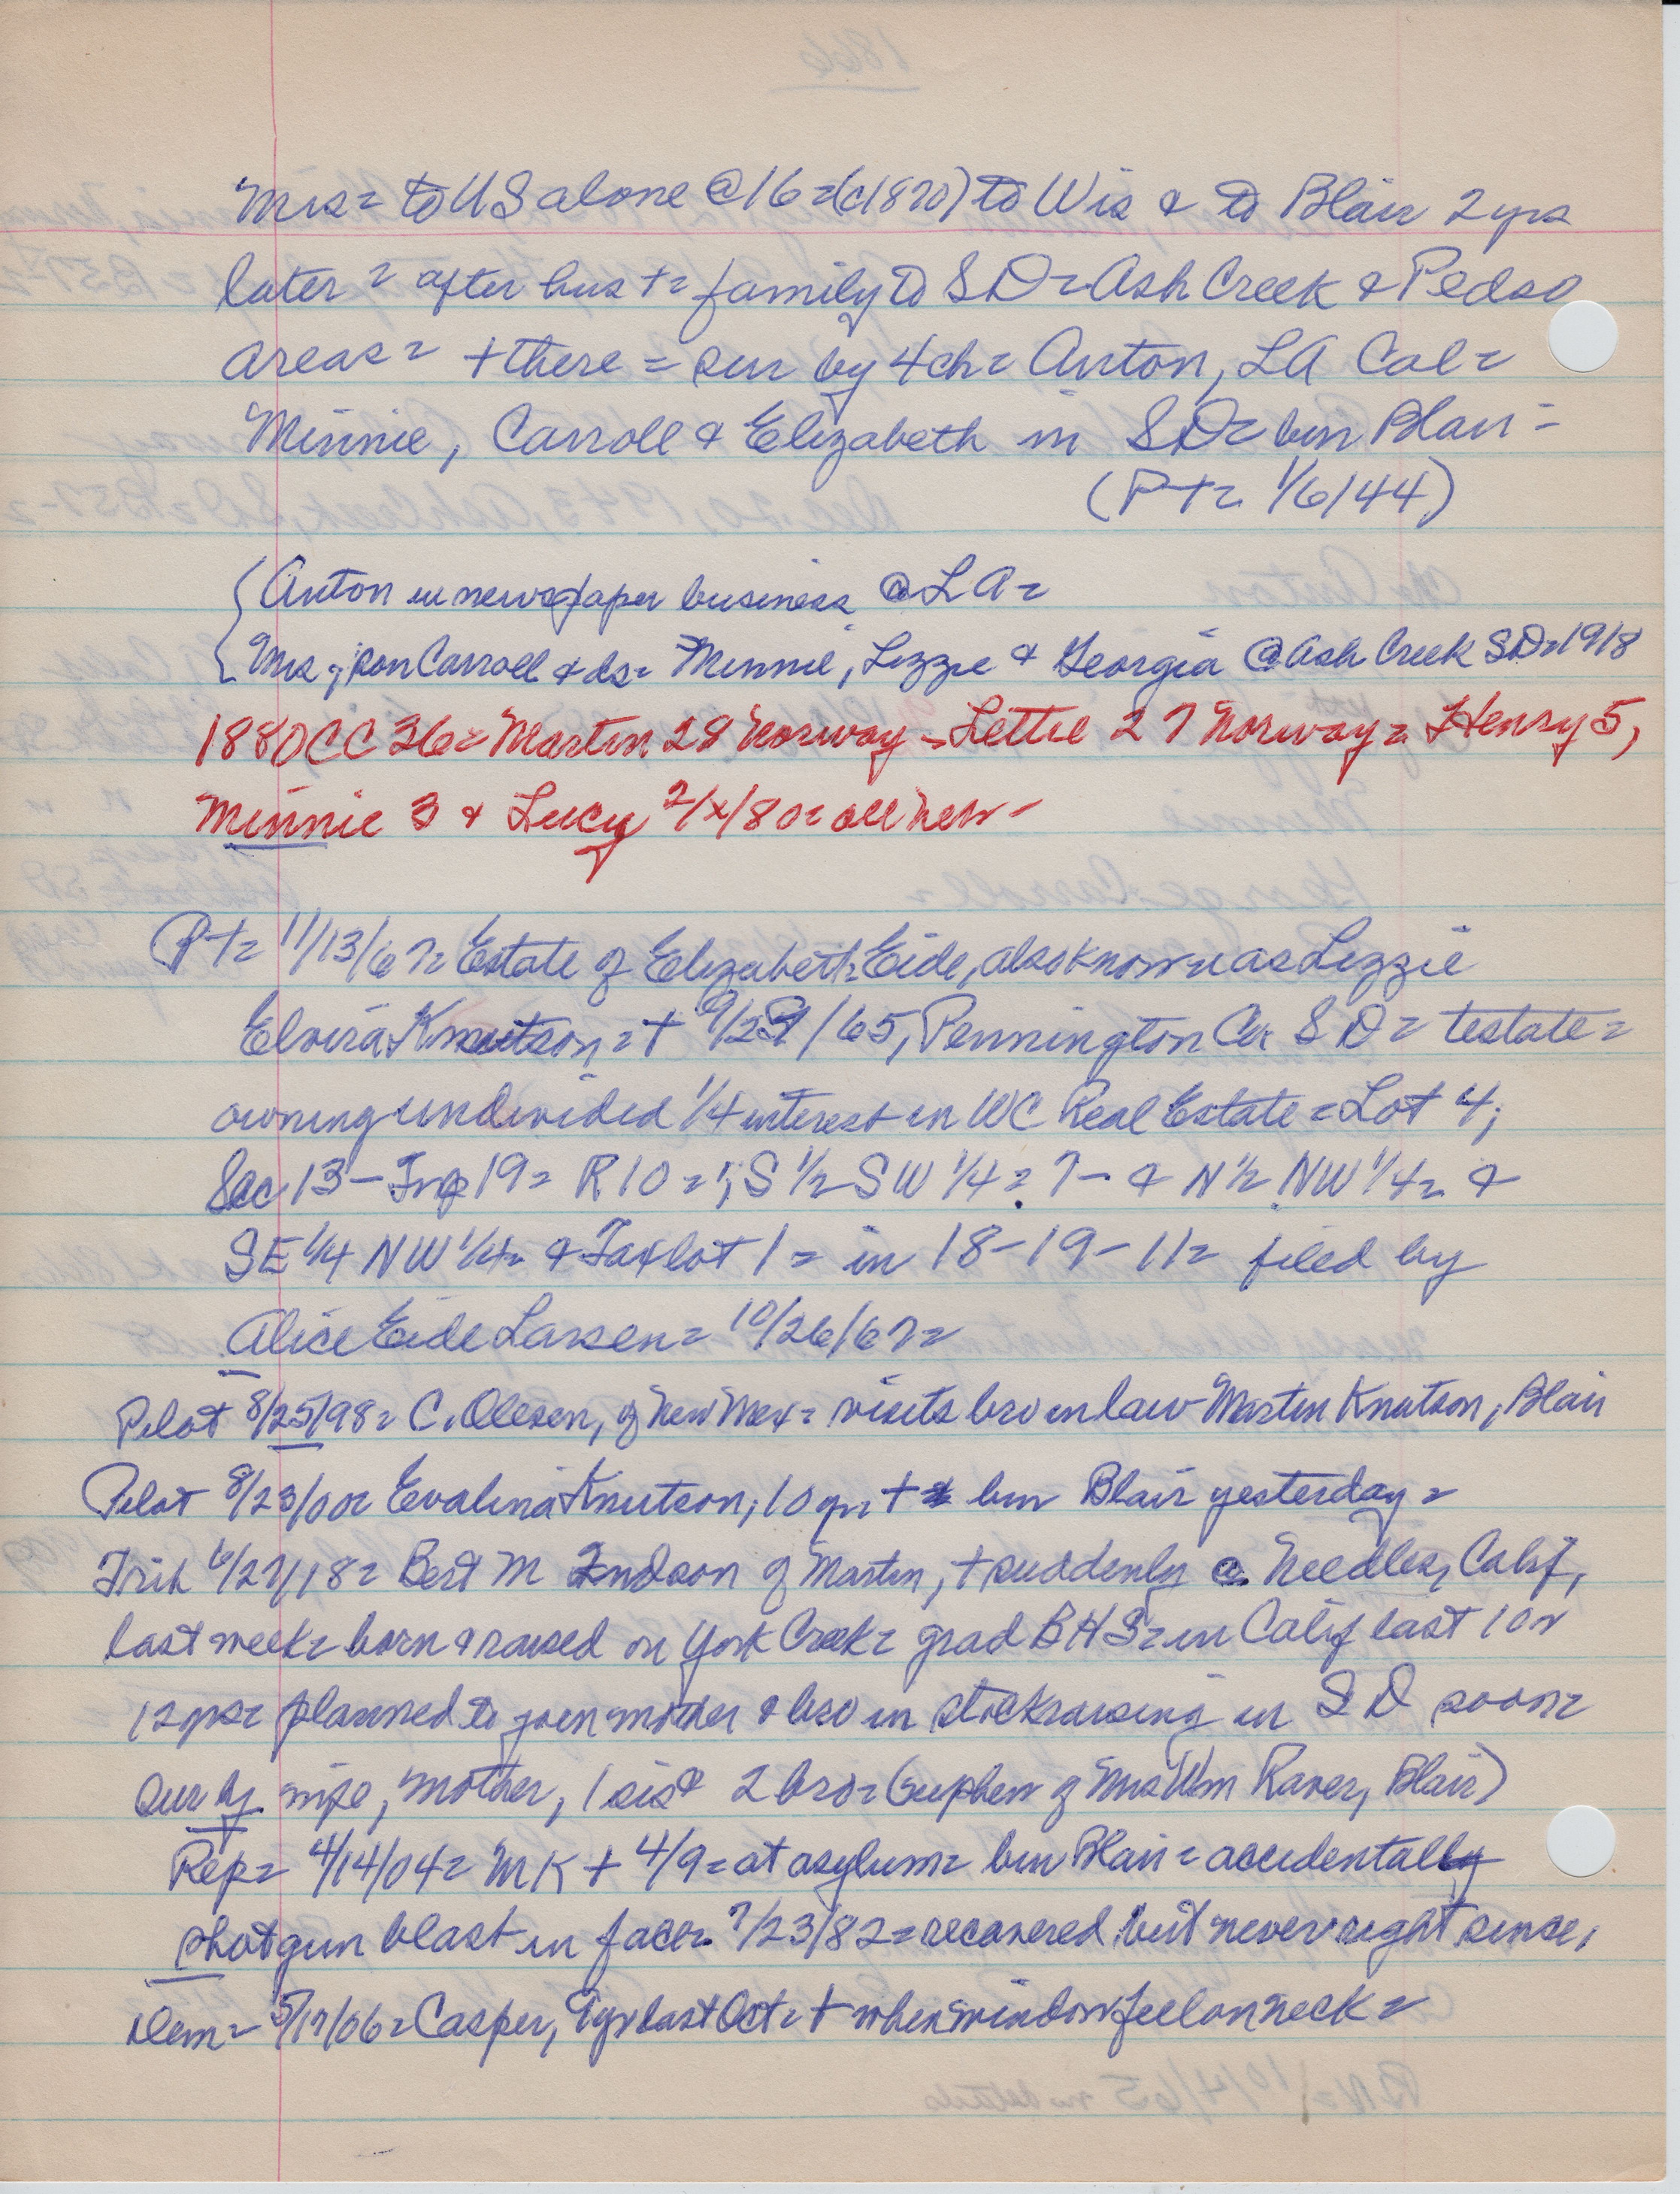 Mrs = to US alone @ 16 = (c1870) to Wis & to Blair 2 yrs
later = after hus + = family to SD = Ash Creek & Pedro
areas = + there = sur by 4 ch = Anton, LA Cal =
Minnie, Carroll & Elizabeth in SD = bur Blair =
(P+ = 1/6/44)
Anton in newspaper business @ LA =
Mrs; son Carroll & ds = Minnie, Lizzie & Georgia @ Ash Creek SD = 1918
1880 CC 36 = Martin 28 Norway = Lettie 27 Norway = Henry 5,
Minnie 3 & Lucy 2/x/80 = all Nebr -
P+ = 11/13/67 = Estate of Elizabeth Eide, also known as Lizzie
Elvira Knutson = + 9/29/65, Pennington Co SD = testate =
owning undivided 1/4 interest in WC Real Estate = Lot 4;
Sec 13 - Twp 19 = R10 = ; S 1/2 SW 1/4 = 7 - & N 1/2 NW 1/4 = &
SE 1/4 NW 1/4 = & Taxlot 1 = in 18-19-11 = filed by
Alice Eide Larsen = 10/26/67 =
Pilot 8/25/98 = C. Olesen, of New Mex = visits bro in law Martin Knutson, Blair
Pilot 8/23/00 = Evalina Knutson, 10 yr + bur Blair yesterday =
Trib 6/27/18 = Bert M 2nd son of Martin, + suddenly @ Needles, Calif,
last week = born & raised on York Creek = grad BHS = in Calif last 10 or
12 yrs = planned to join mother & bro in stockraising in SD soon =
Sur by wife, mother, 1 sis & 2 bro = (nephew of Mrs Wm Raver, Blair)
Rep = 4/14/04 = MK + 4/9 = at asylum = bur Blair = accidental
shotgun blast in face = 7/23/82 = recovered but never right since,
Dem = 5/17/06 = Casper, 9 yr last Oct = + when window fell on neck =